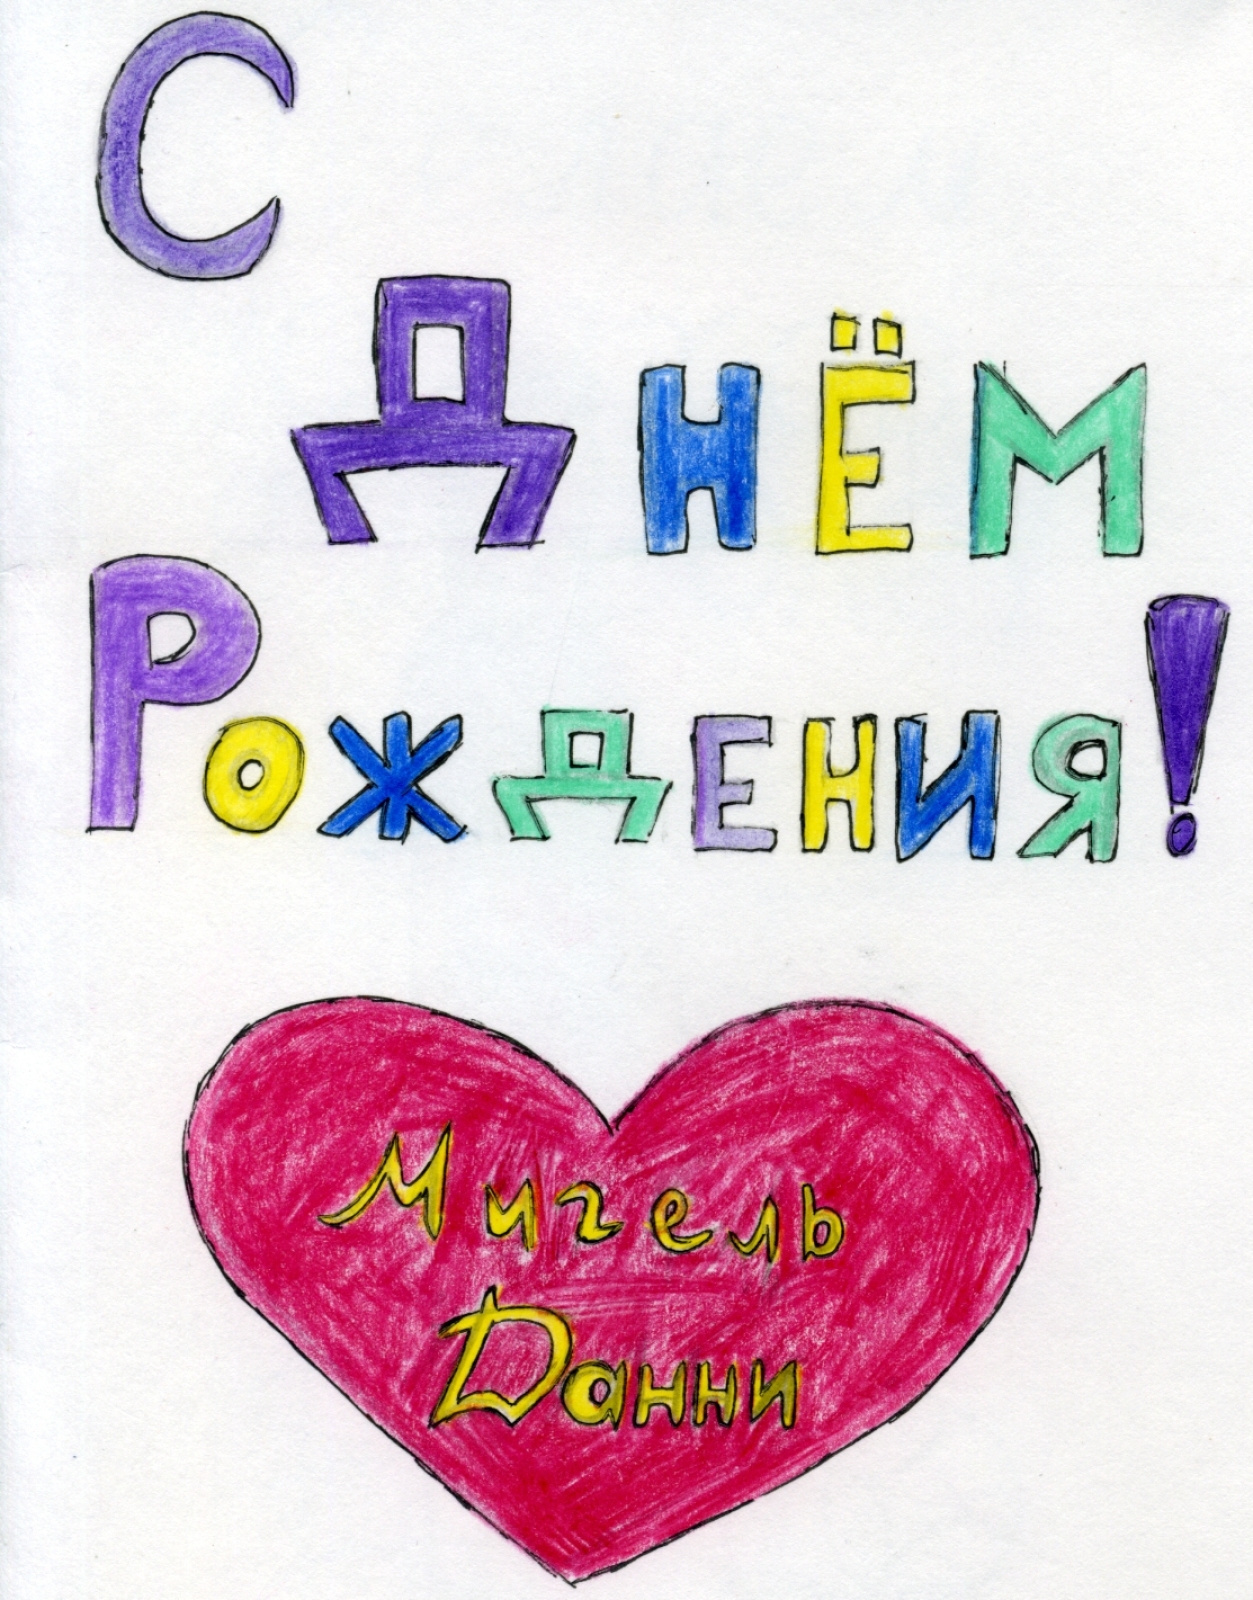 С
Днём
Рождения!
Мигель
Данни